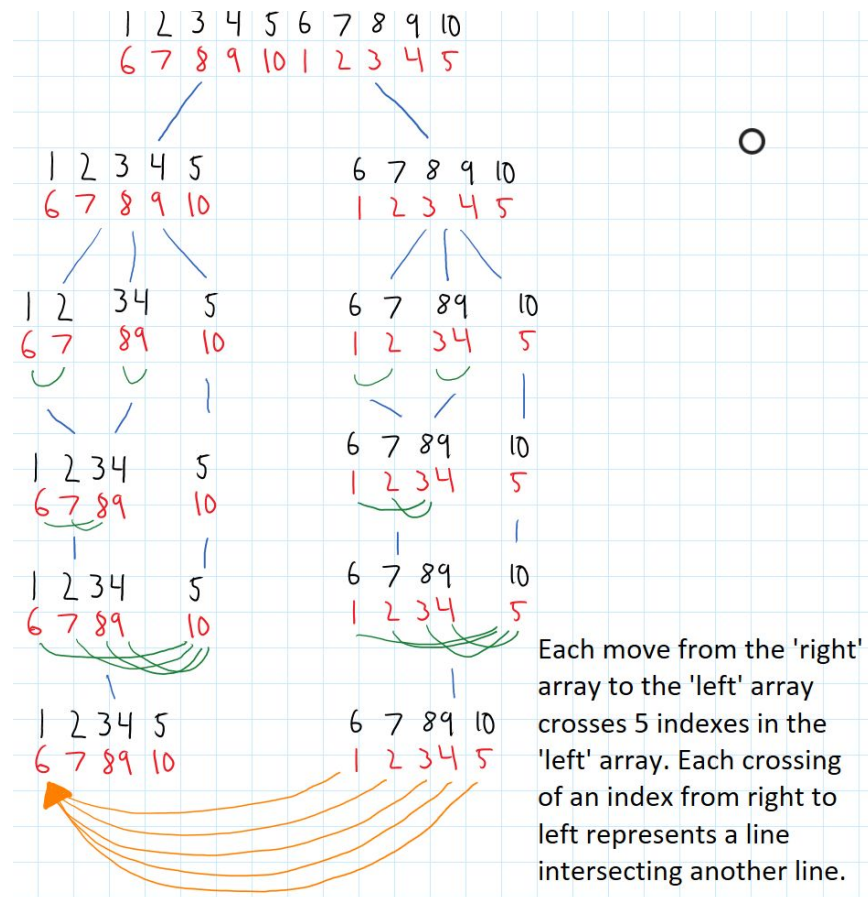 1 2 3 4 5 6 7 8 9 10
6 7 8 9 10 1 2 3 4 5
1 2 3 4 5 6 7 8 9 10
6 7 8 9 10 1 2 3 4 5
1 2 34 5 6 7 89 10
6 7 89 10 1 2 34 5
6 7 89 10
1 2 34 5
1 2 34 5
6 7 89 10
6 7 89 10
1 2 34 5
1 2 34 5
6 7 89 10
Each move from the 'right'
array to the 'left' array
crosses 5 indexes in the
'left' array. Each crossing
of an index from right to
left represents a line
intersecting another line.
1 2 34 5 6 7 89 10
6 7 89 10 1 2 34 5